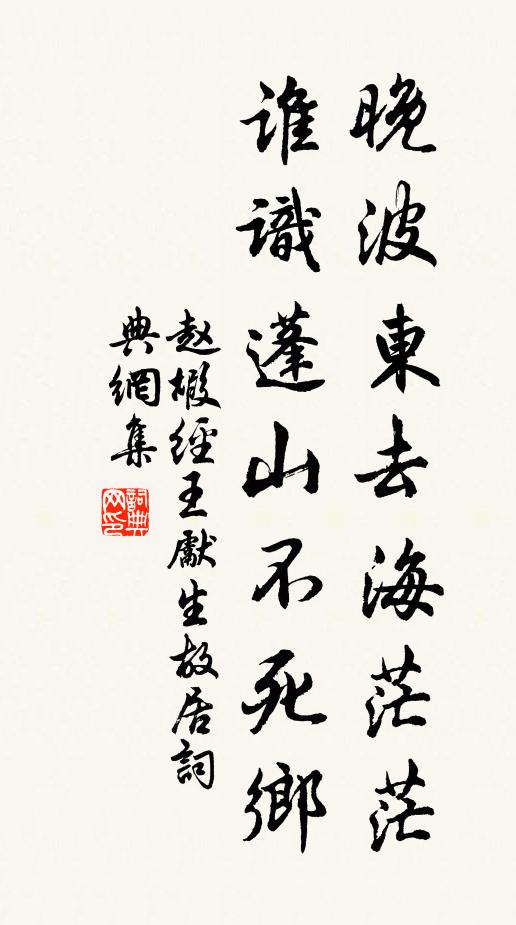 晚波東去海茫茫
誰識蓬山不死鄉
赵嘏經王獻生故居詞
典網集
詞典
网印